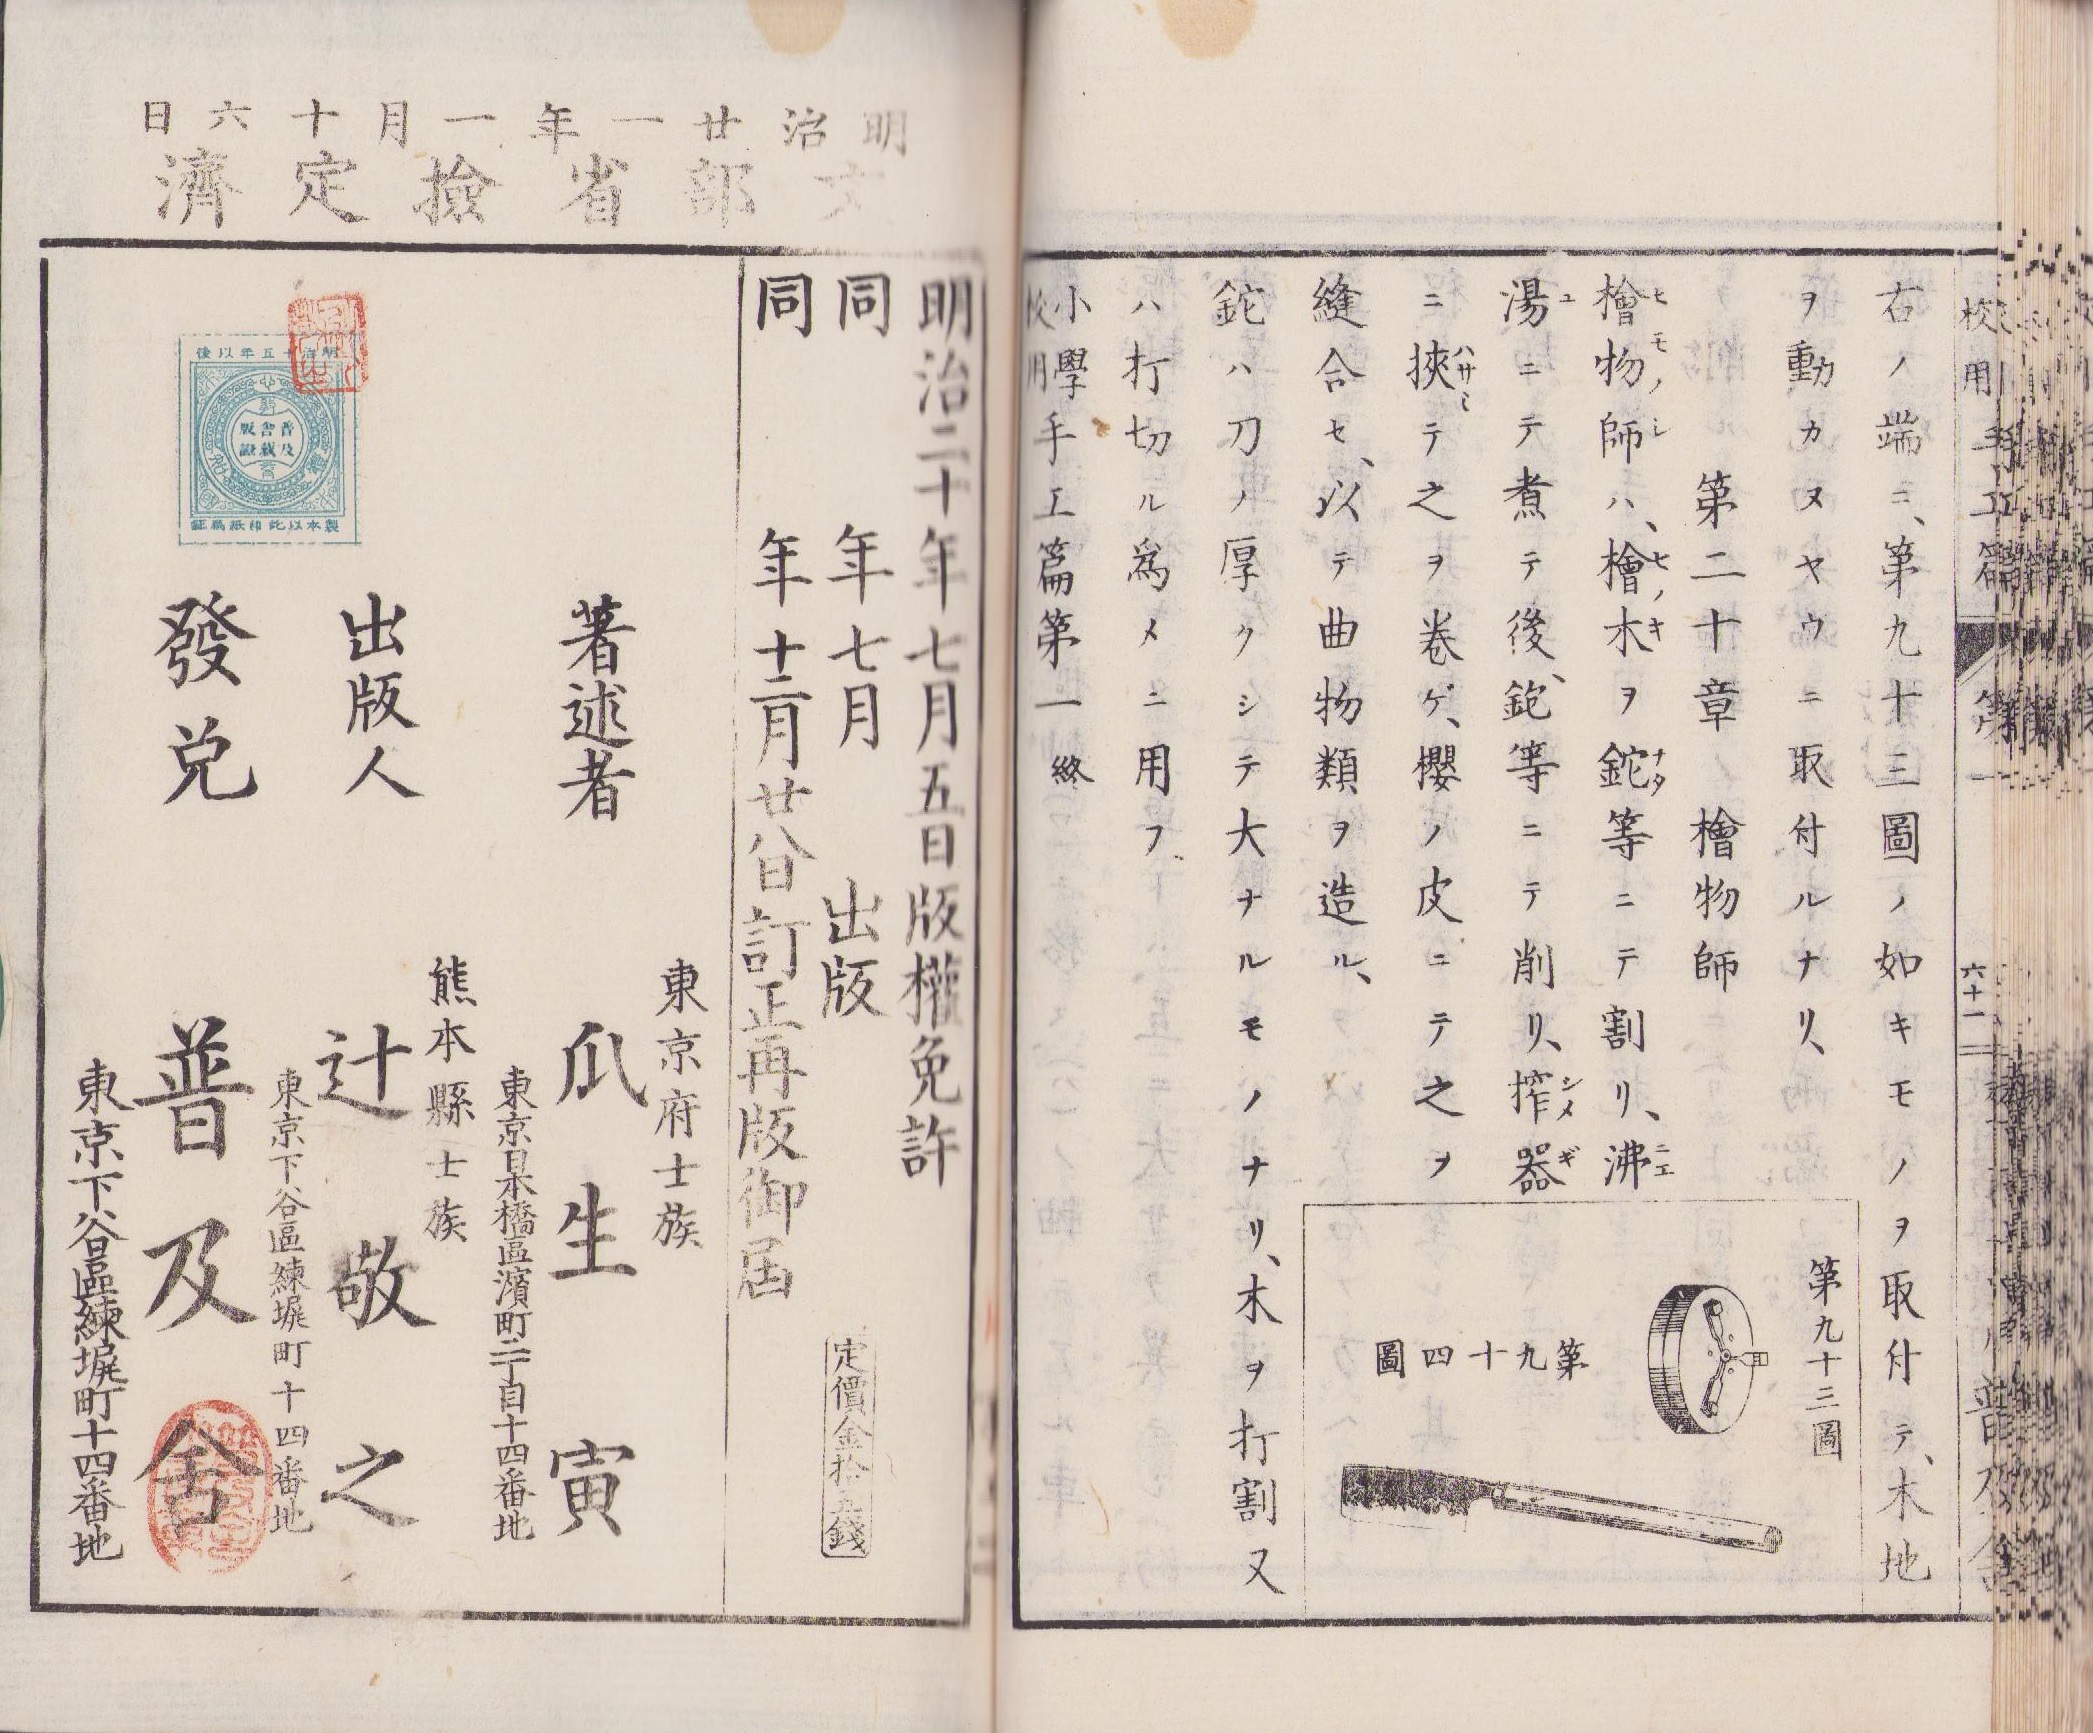 右ノ端ニ、第九十三圖ノ如キモノヲ取付テ、木地
ヲ動カヌヤウニ取付ルナリ、
第二十章 檜物師
檜物師ハ、檜木ヲ鉈等ニテ割リ、沸
ヒモノシ ヒノキ ナタ ニエ
湯ニテ煮テ後、鉋等ニテ削リ、搾器
ユ シメギ
ニ挾テ之ヲ卷ゲ、櫻ノ皮ニテ之ヲ
ハサミ
縫合セ、以テ曲物類ヲ造ル、
鉈ハ刀ノ厚クシテ大ナルモノナリ、木ヲ打割又
ハ打切ル爲メニ用フ、
小學校用手工篇第一 終
第九十三圖
第九十四圖
校用手工篇 第一 六十一 普及舍
明治廿一年一月十六日
文部省檢定濟
明治二十年七月五日版權免許
同 年七月 出版
同 年十二月廿八日訂正再版御届
定價金拾五錢
著述者
東京府士族
瓜生寅
東京日本橋區濱町二丁目十四番地
出版人
熊本縣士族
辻敬之
東京下谷區練塀町十四番地
發兌
普及舍
東京下谷區練塀町十四番地
明治十五年以後
普及舍藏版證
製本以此印紙爲証